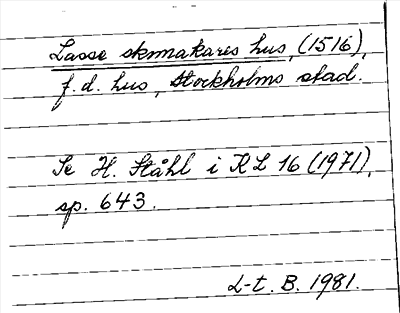 Lasse skomakares hus, (1516),
f.d. hus, Stockholms stad.
Se H. Ståhl i KL 16 (1971),
sp. 643.
L-t. B. 1981.